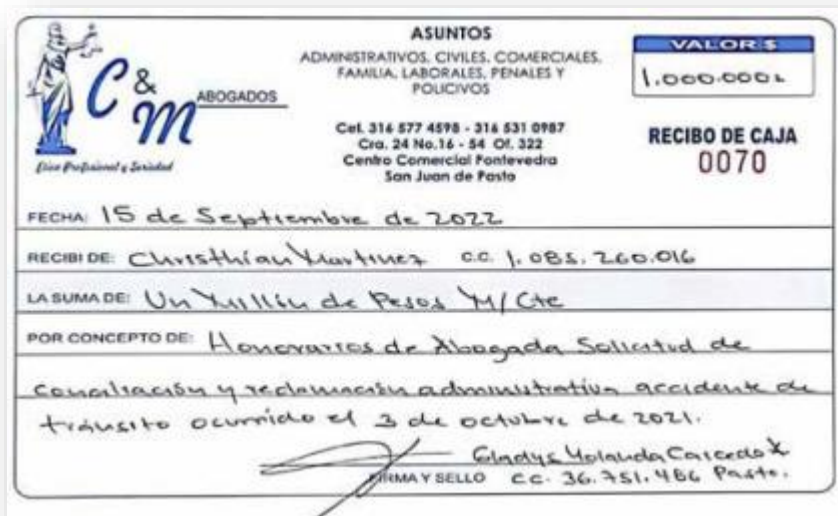 ASUNTOS
ADMINISTRATIVOS, CIVILES, COMERCIALES,
FAMILIA, LABORALES, PENALES Y
POLICIVOS
C & M ABOGADOS
Etica Profesional y Seriedad
Cel. 316 577 4598 - 316 531 0987
Cra. 24 No.16 - 54 Of. 322
Centro Comercial Pontevedra
San Juan de Pasto
VALOR $
1.000.000
RECIBO DE CAJA
0070
FECHA: 15 de Septiembre de 2022
RECIBI DE: Christhian Martinez c.c. 1.085.260.016
LA SUMA DE: Un Millón de Pesos M/Cte
POR CONCEPTO DE: Honorarios de Abogada Solicitud de
conciliación y reclamación administrativa accidente de
tránsito ocurrido el 3 de octubre de 2021.
Gladys Yolanda Caicedo
FIRMA Y SELLO cc. 36.751.486 Pasto.